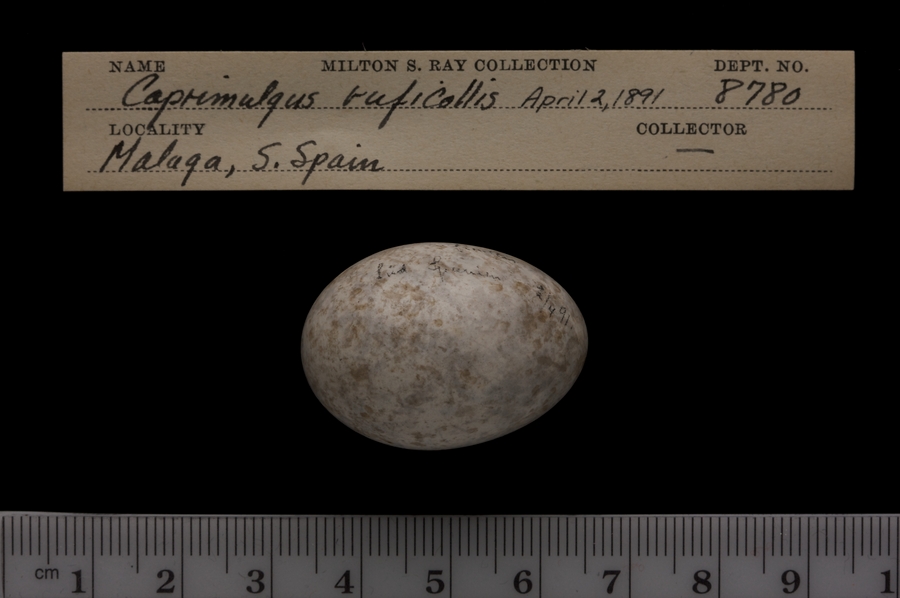 NAME MILTON S. RAY COLLECTION DEPT. NO.
Caprimulgus ruficollis April 2, 1891 8780
LOCALITY COLLECTOR
Malaga, S. Spain —
Süd Spanien
2/4 91
cm 1 2 3 4 5 6 7 8 9 1